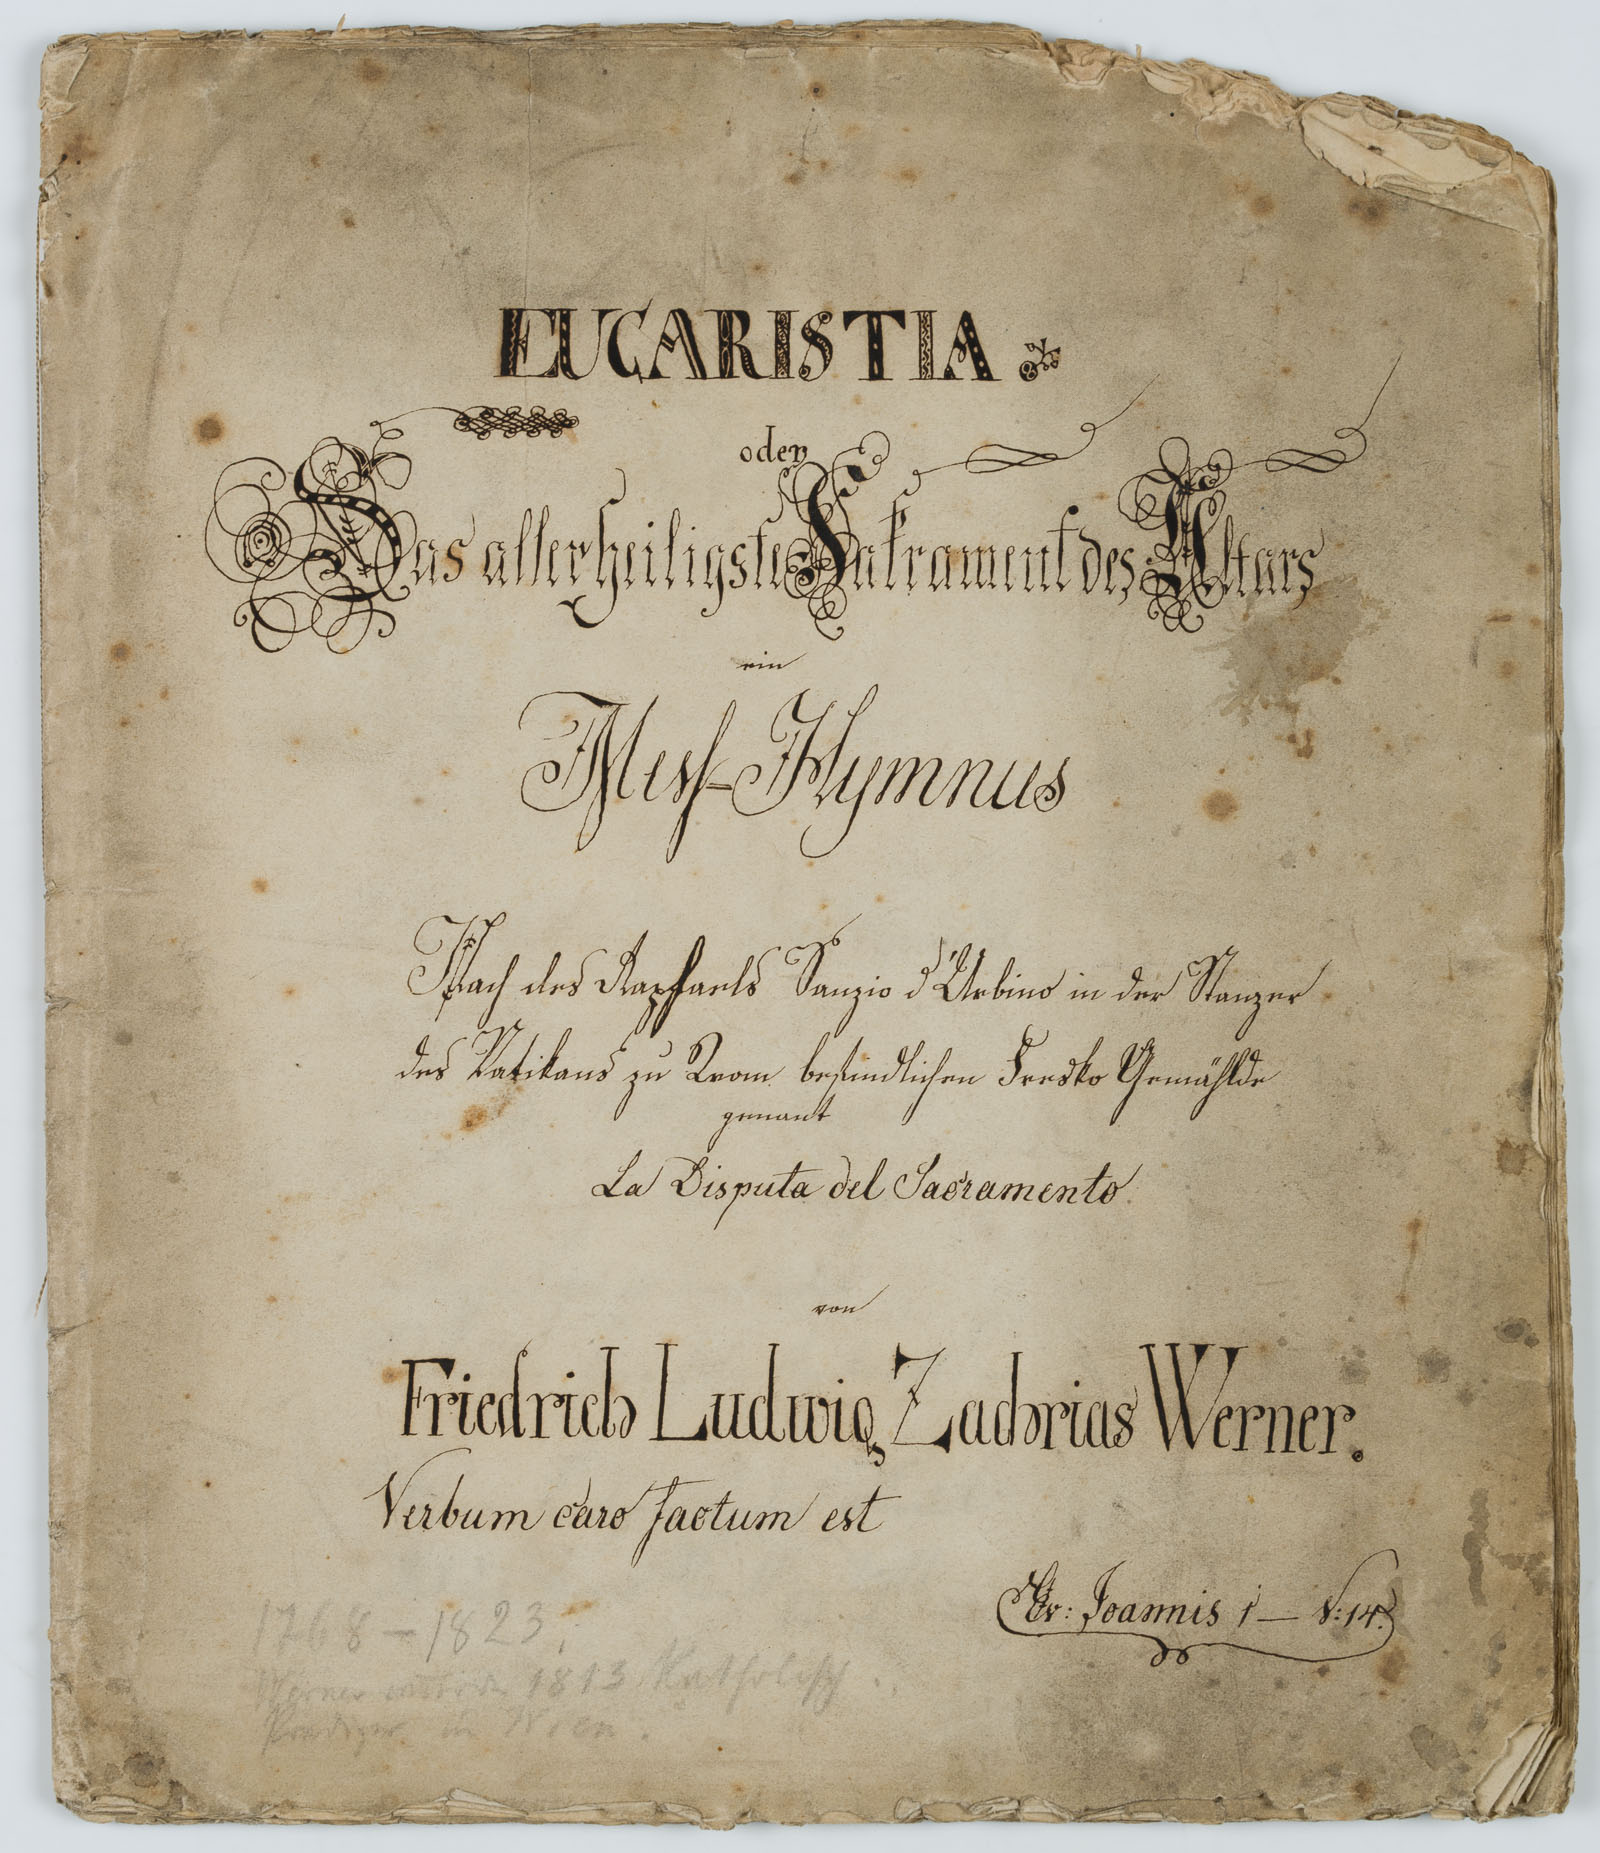 EUCARISTIA
oder
Das allerheiligste Sakrament des Altars
ein
Meß-Hymnus
Nach des Rapfaels Sanzio d'Urbino in der Stanzer
des Vatikans zu Rom befindlichen Fresko Gemählde
genant
La Disputa del Sacramento
von
Friedrich Ludwig Zachrias Werner.
Verbum caro factum est
Ev: Joannis 1 — V: 14.
1768 – 1823.
Werner 1813 Katholisch
Prediger in Wien.